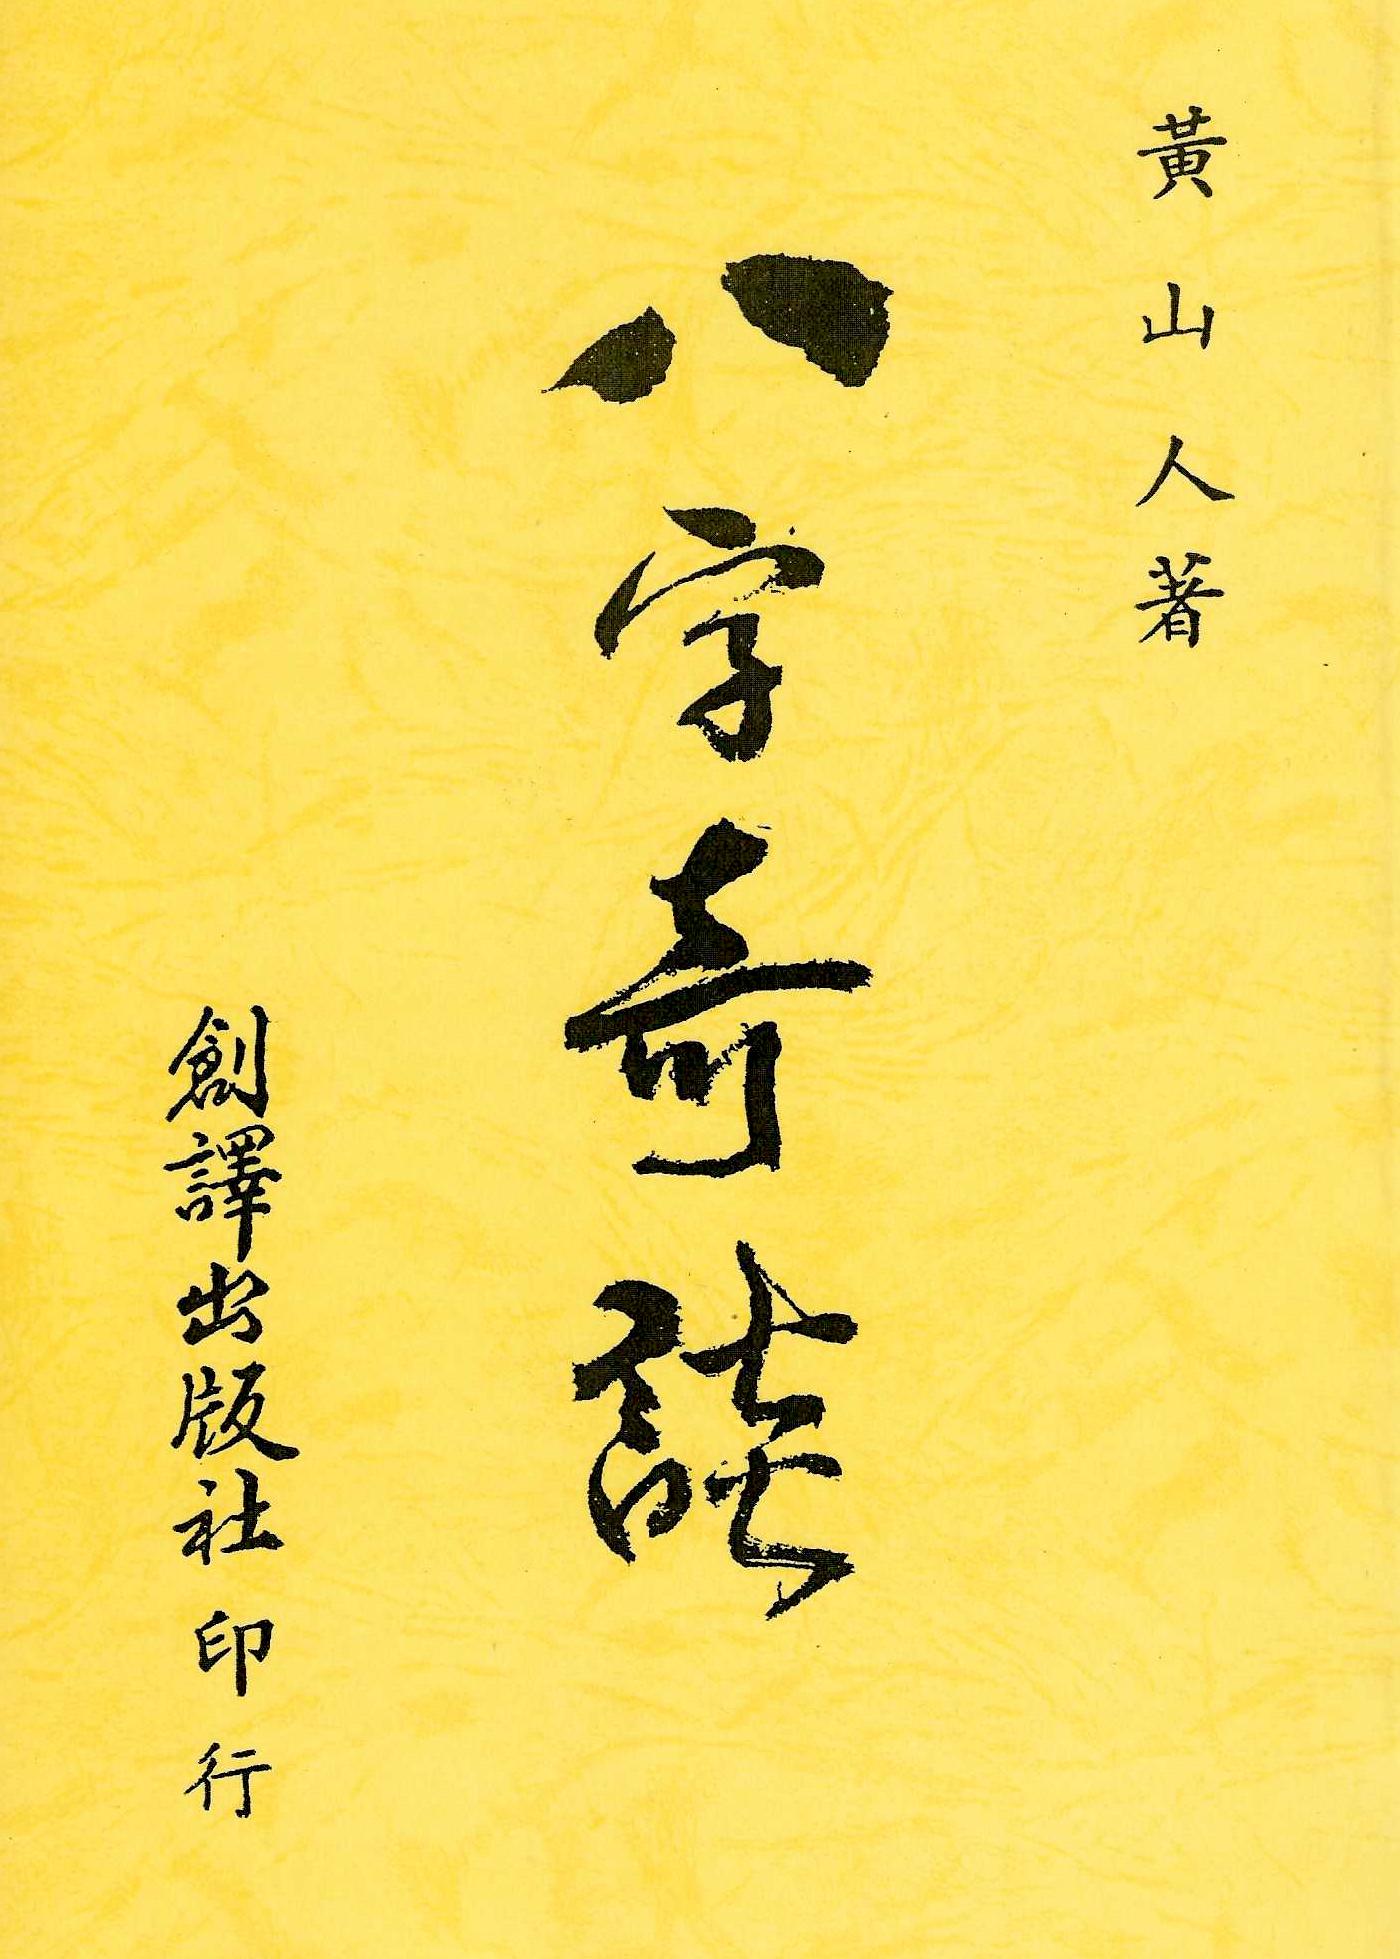 黃山人著
八字奇談
創譯出版社印行